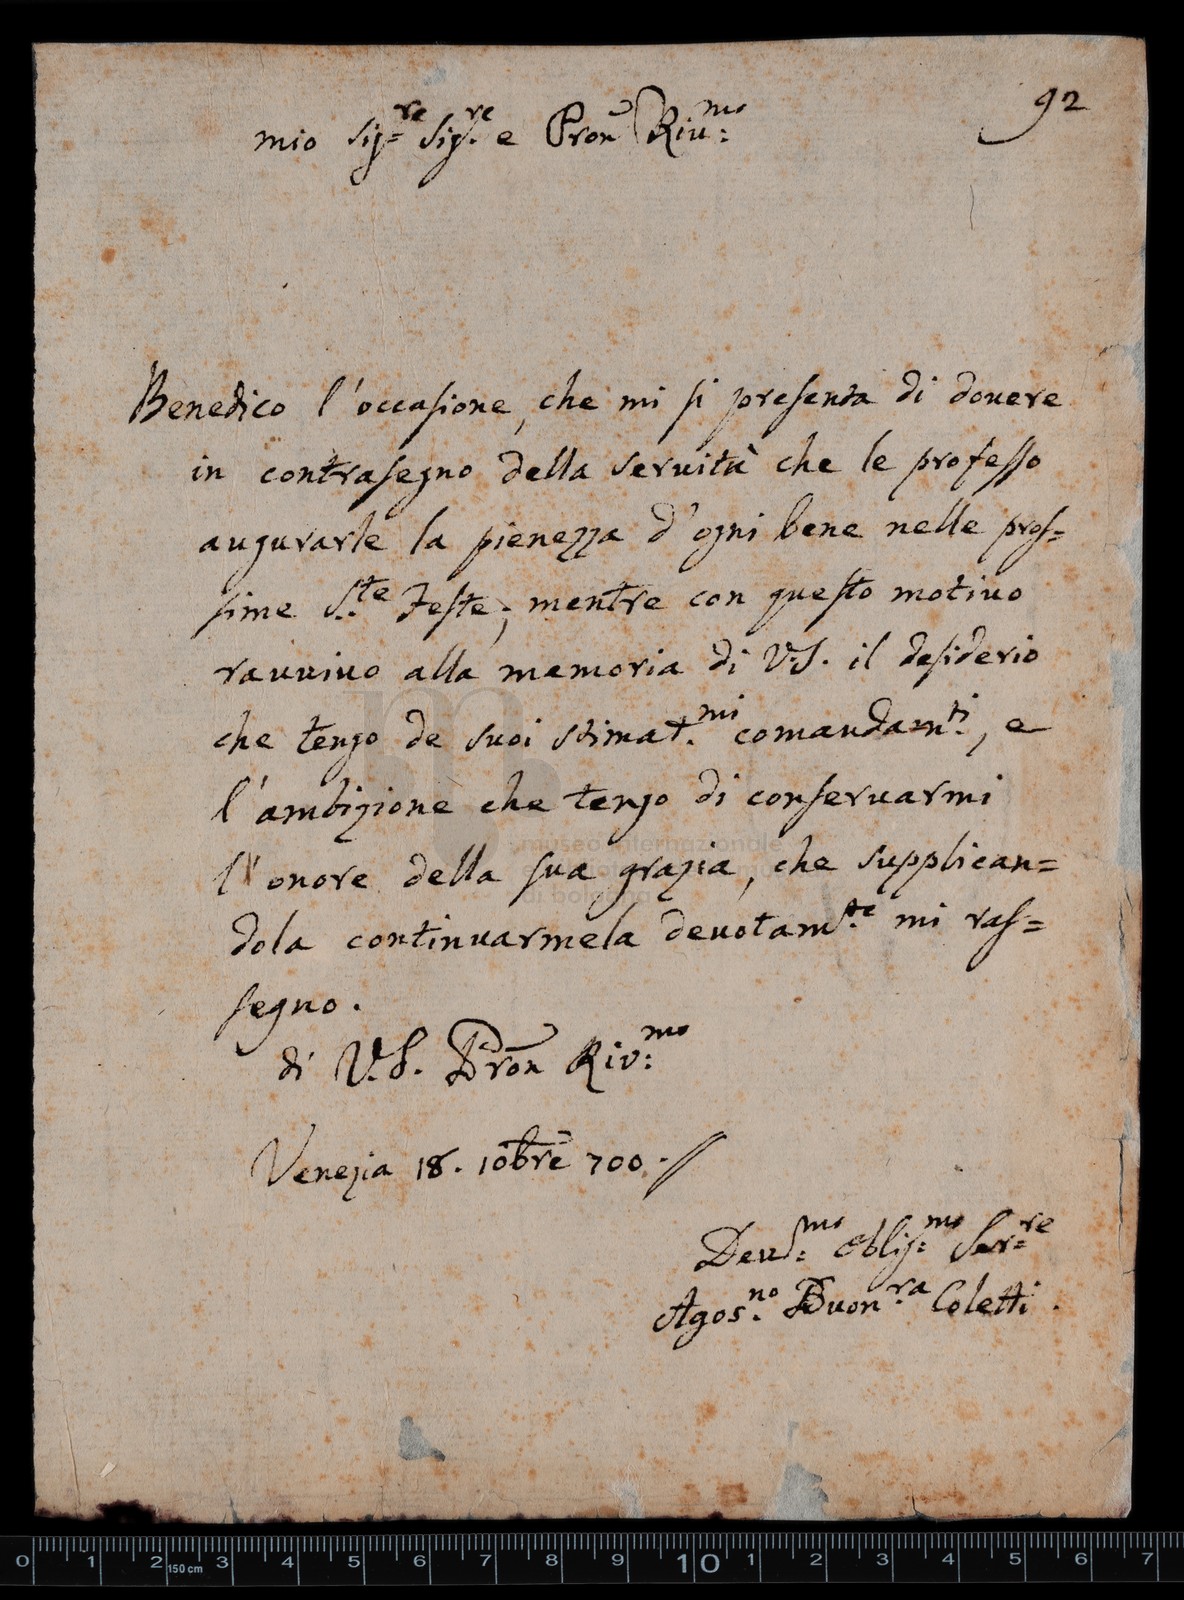 92
mio Sig.re Sig.re e Pron Riv.mo
Benedico l'occasione, che mi si presenta di douere
in contrasegno della seruitù che le professo
augurarle la pienezza d'ogni bene nelle pros=
sime S.te Feste; mentre con questo motiuo
rauuiuo alla memoria di V.S. il desiderio
che tengo de suoi stimat.mi comandam.ti, e
l'ambizione che tengo di conseruarmi
l'onore della sua grazia, che supplican=
dola continuarmela deuotam.te mi ras=
segno.
di V.S. Pron Riv.mo
Venezia 18. 10bre 700.
Deu.mo Oblig.mo Ser.re
Agos.no Buon.ra Coletti.
museo internazionale
di bologna
0 1 2 150 cm 3 4 5 6 7 8 9 10 1 2 3 4 5 6 7